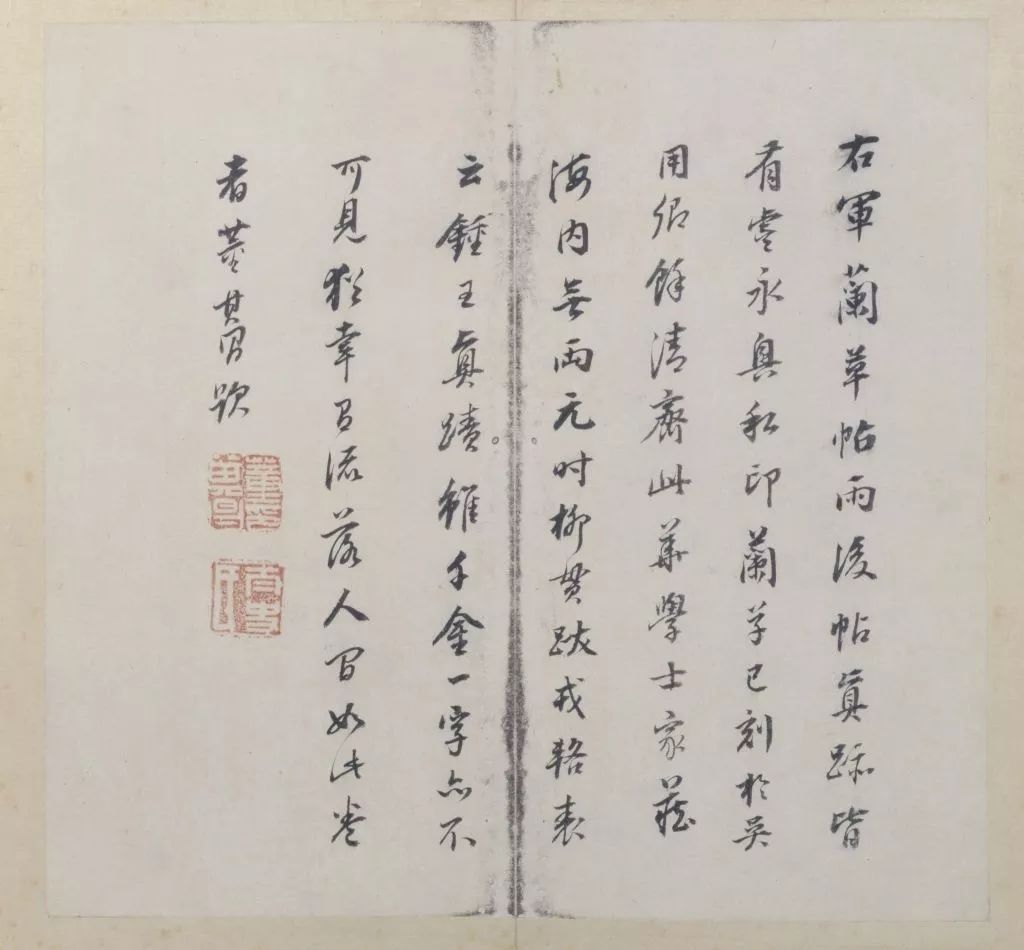 右軍蘭草帖雨後帖真跡皆
有虞永興私印蘭草已刻於吳
用卿餘清齋此華學士家藏
海内無兩元时柳貫跋戎輅表
云鍾王真蹟雖千金一字亦不
可見猶幸有流落人間如此卷
者董其昌跋